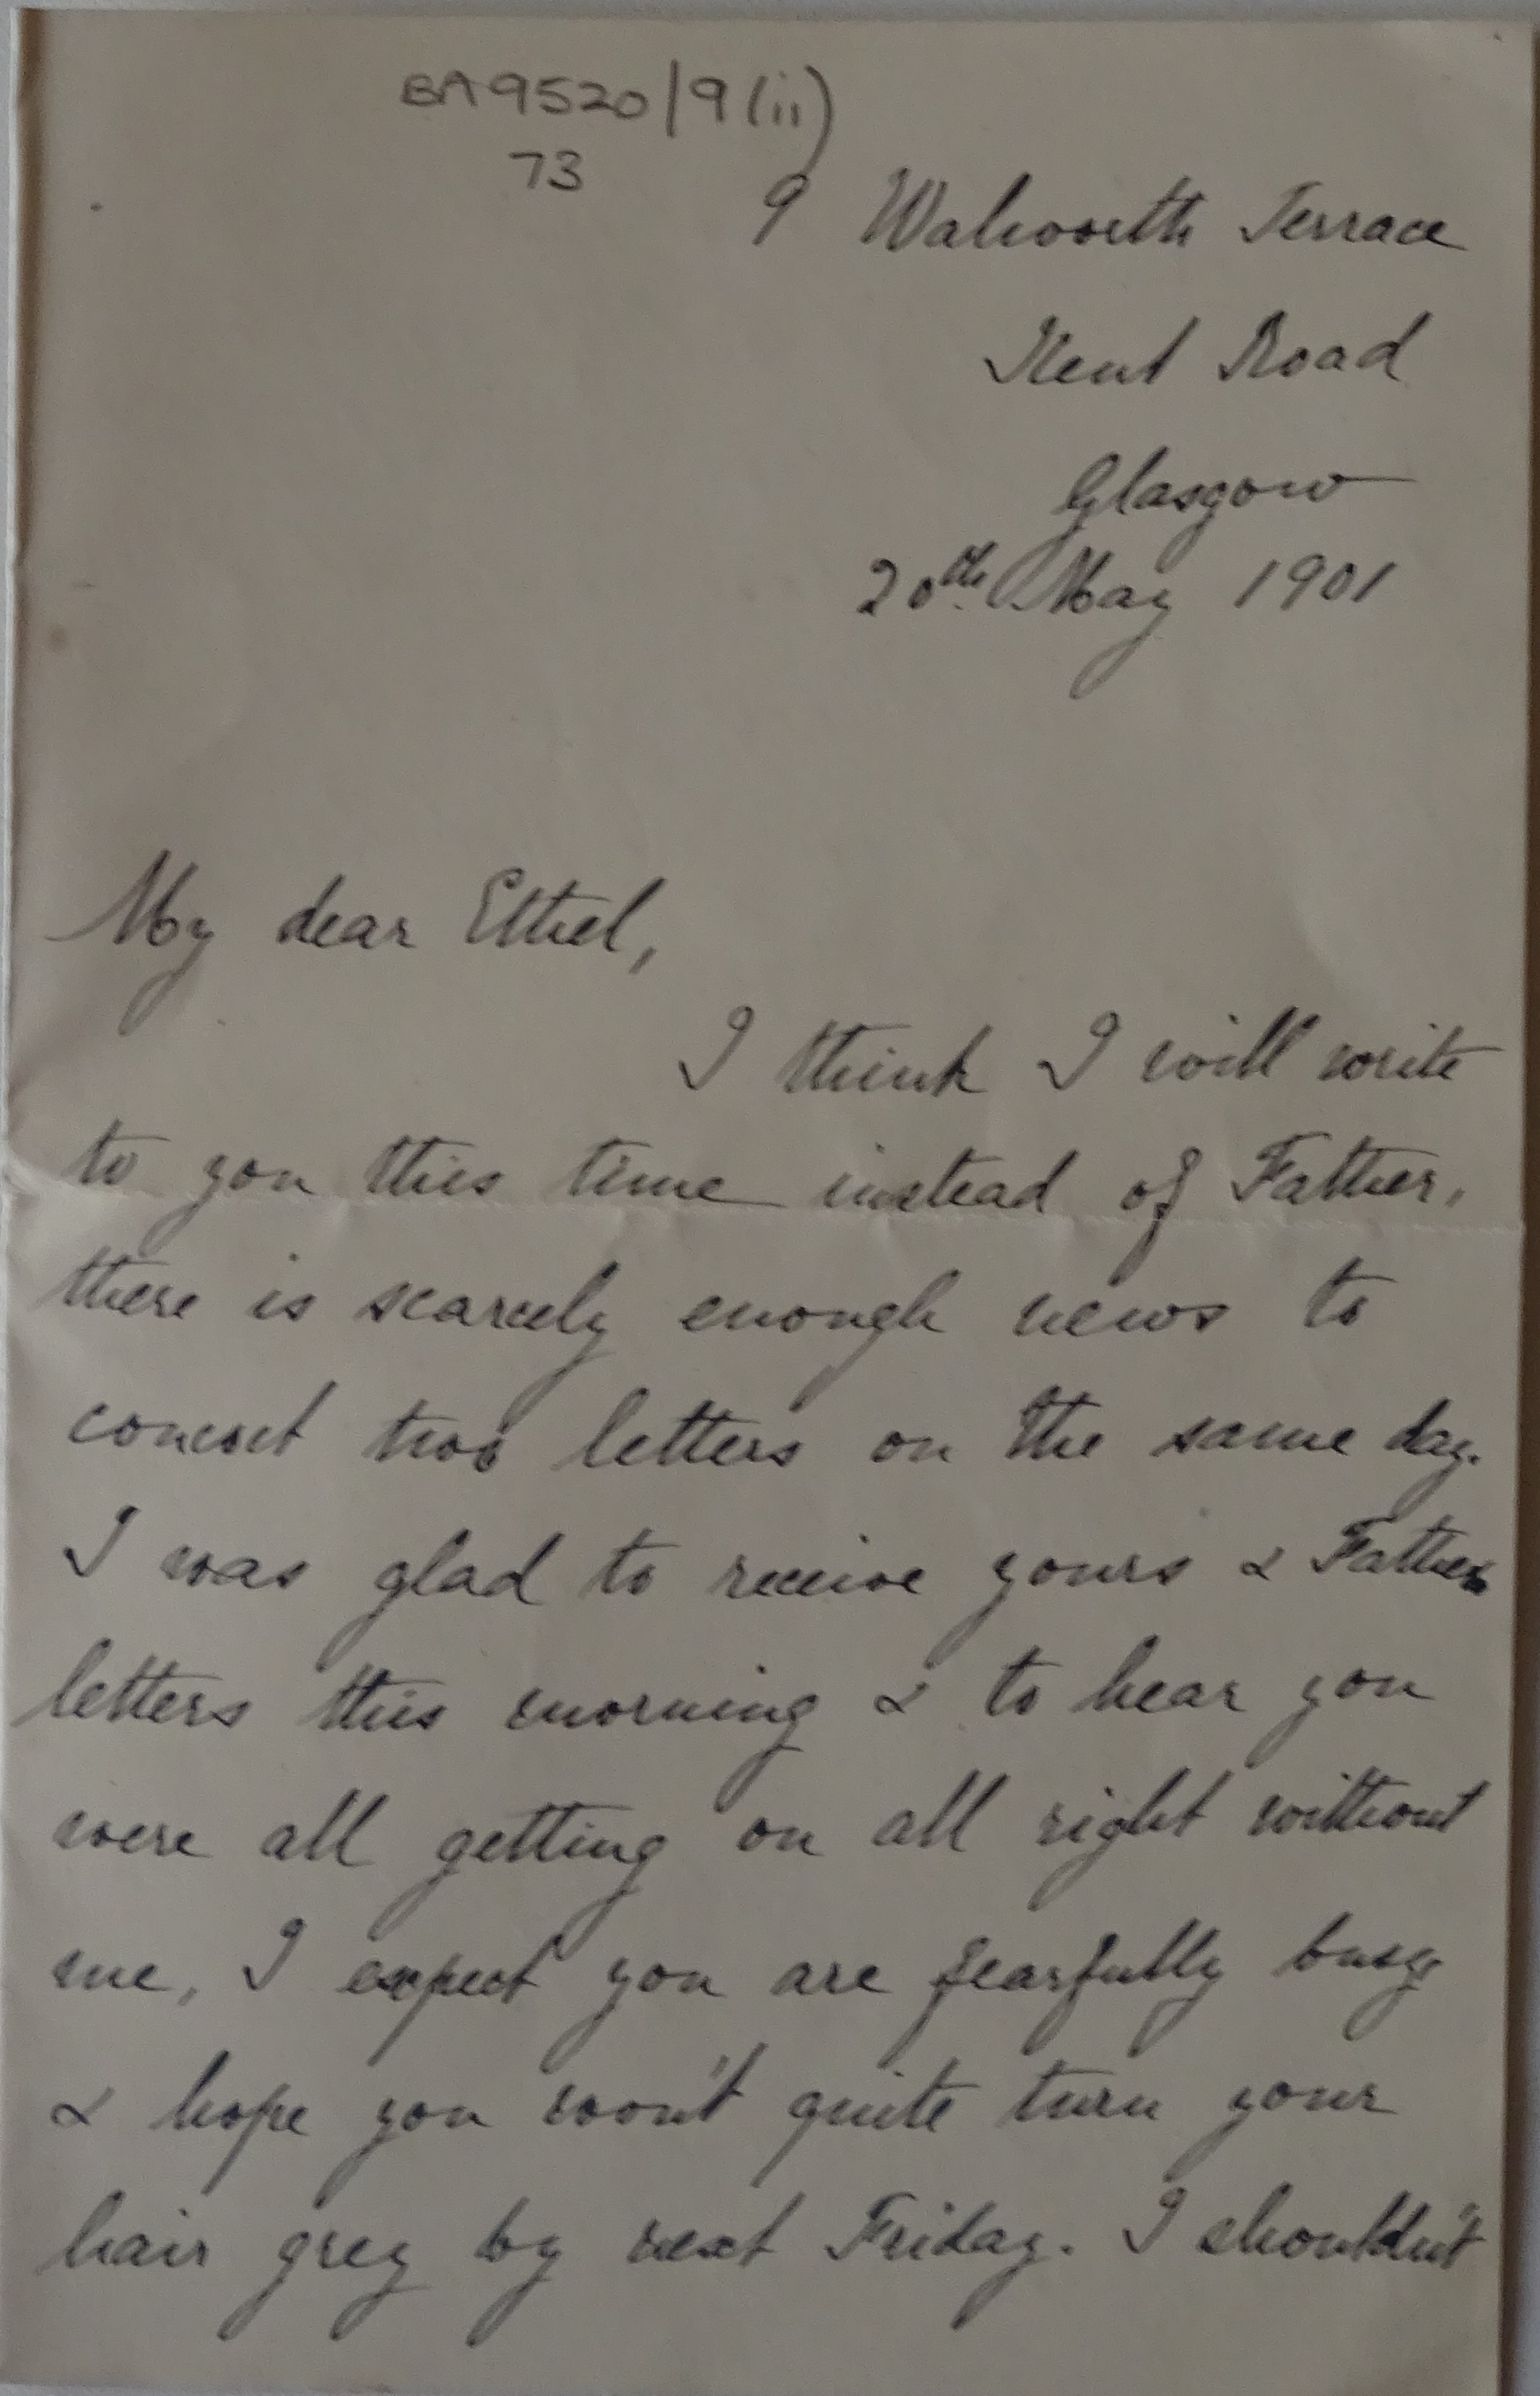 BA9520/9(ii)
73
9 Walworth Terrace
Kent Road
Glasgow
20th May 1901
My dear Ethel,
I think I will write
to you this time instead of Father,
there is scarcely enough news to
concoct two letters on the same day.
I was glad to receive yours & Fathers
letters this morning & to hear you
were all getting on all right without
me, I expect you are fearfully busy
& hope you won't quite turn your
hair grey by next Friday. I shouldn't